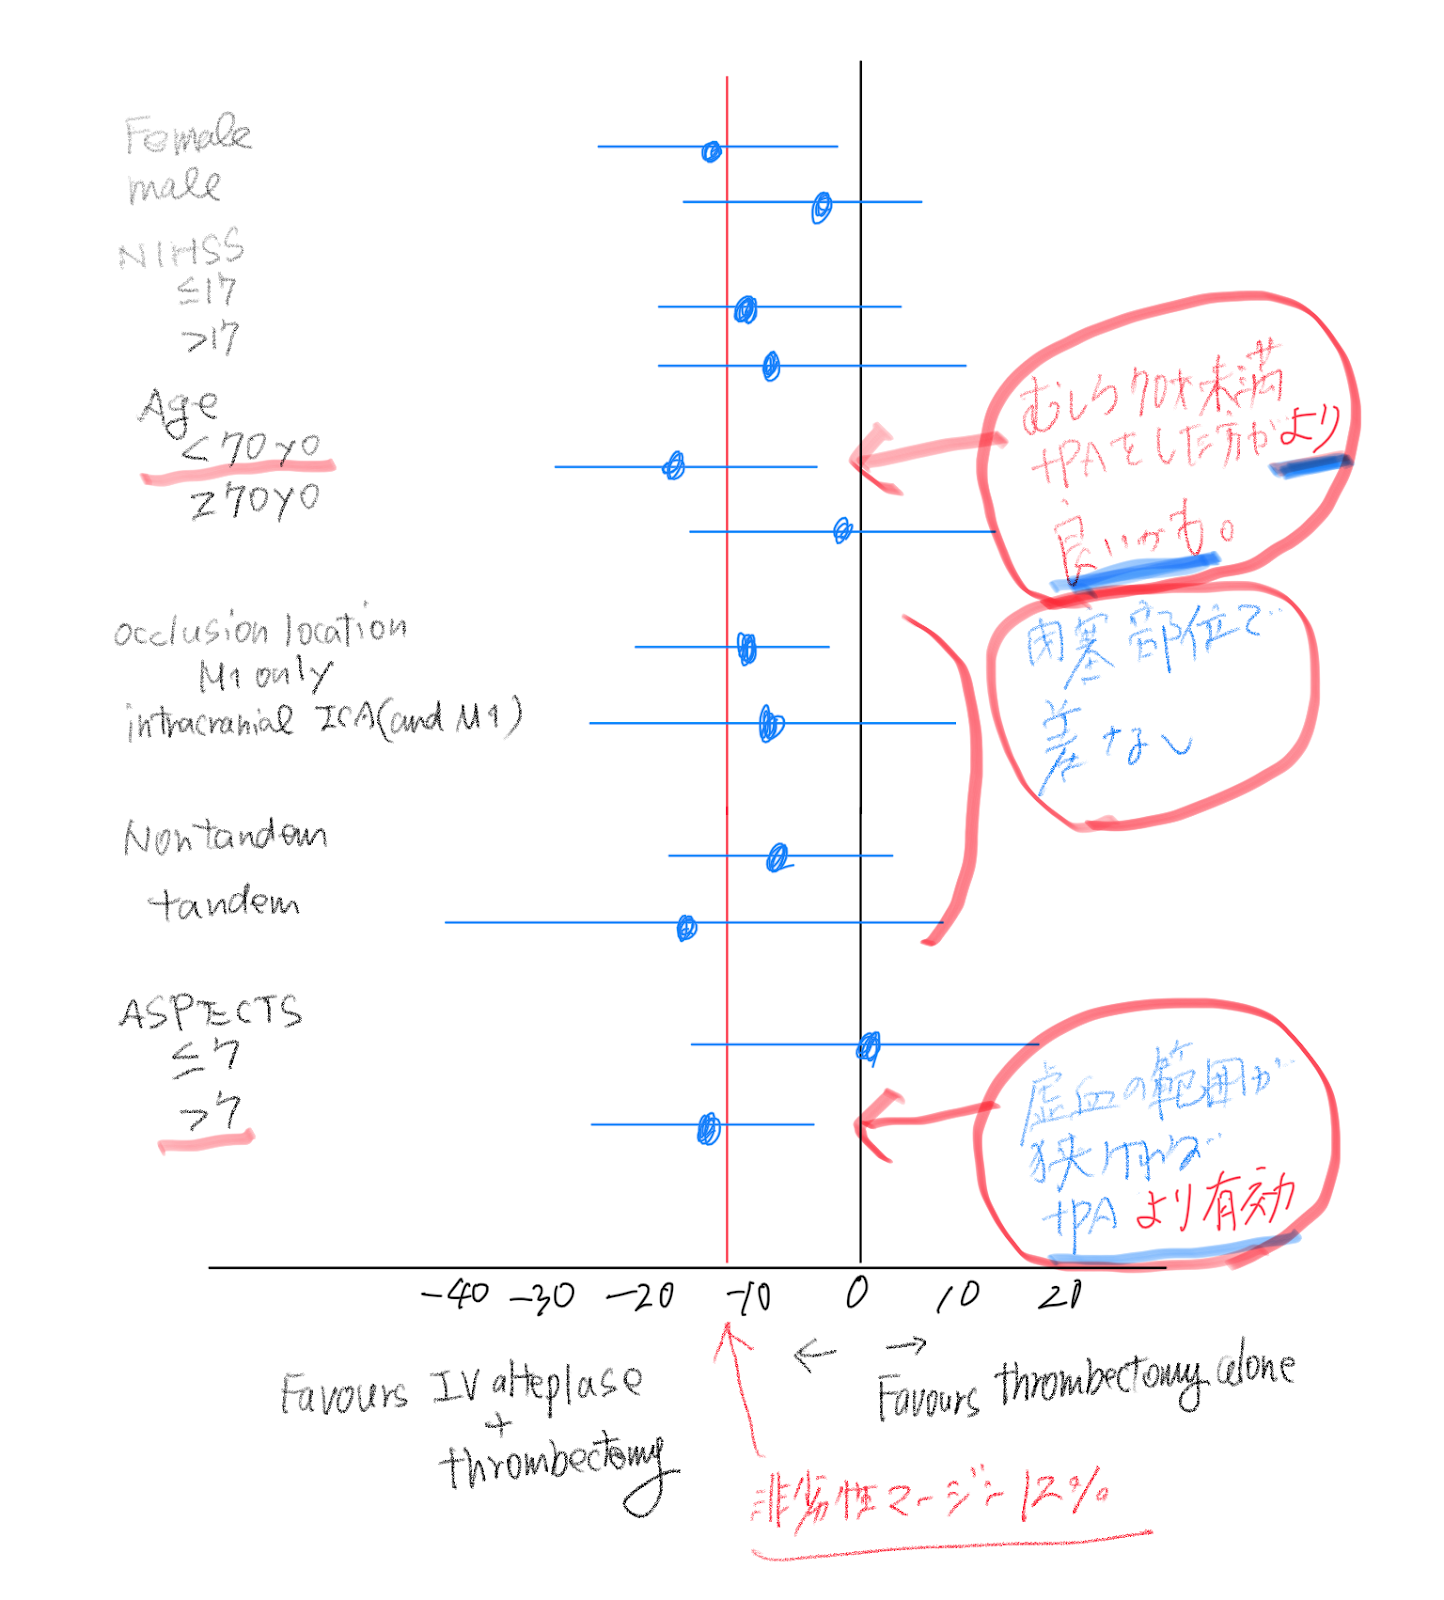 Female
male
NIHSS
≤17
>17
Age
<70yo
≥70yo
occlusion location
M1 only
intracranial ICA(and M1)
Nontandem
tandem
ASPECTS
≤7
>7
むしろ70才未満
tPAをした方がより
良いかも。
閉塞部位で
差なし
虚血の範囲が
狭ければ
tPAより有効
-40 -30 -20 -10 0 10 20
← →
Favours IV alteplase
+
thrombectomy
Favours thrombectomy alone
非劣性マージン12%